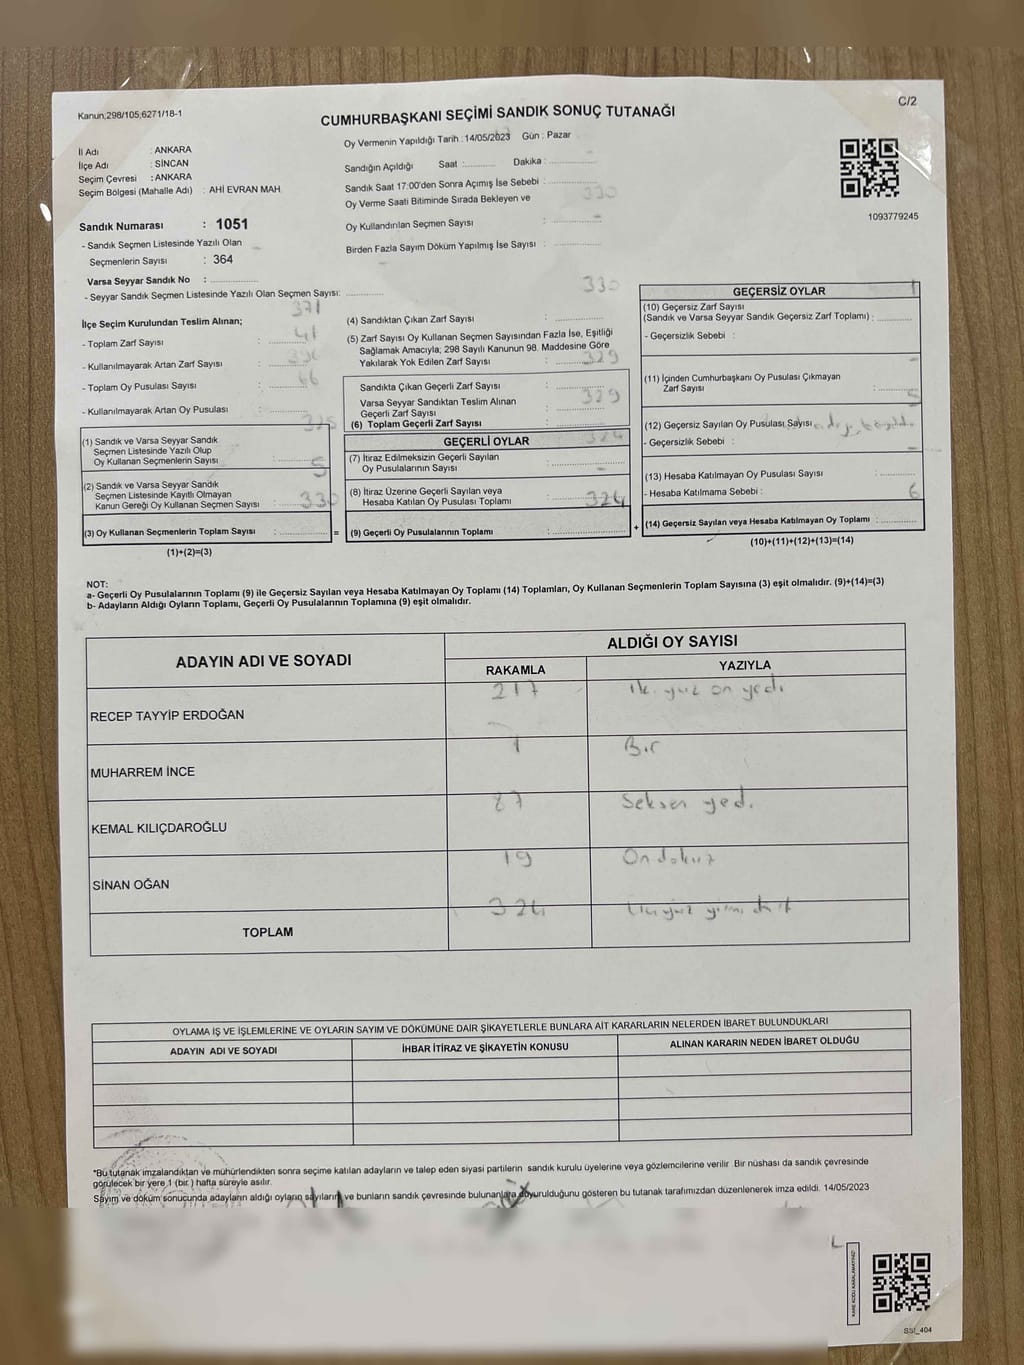 Kanun;298/105;6271/18-1
C/2
CUMHURBAŞKANI SEÇİMİ SANDIK SONUÇ TUTANAĞI
Oy Vermenin Yapıldığı Tarih :14/05/2023 Gün : Pazar
İl Adı : ANKARA
İlçe Adı : SİNCAN
Seçim Çevresi : ANKARA
Seçim Bölgesi (Mahalle Adı) : AHİ EVRAN MAH
Sandığın Açıldığı Saat :............ Dakika :................
Sandık Saat 17:00'den Sonra Açımış İse Sebebi :................
Oy Verme Saati Bitiminde Sırada Bekleyen ve 330
Oy Kullandırılan Seçmen Sayısı : ................
Birden Fazla Sayım Döküm Yapılmış İse Sayısı : ................
1093779245
Sandık Numarası : 1051
- Sandık Seçmen Listesinde Yazılı Olan
Seçmenlerin Sayısı : 364
Varsa Seyyar Sandık No : ................
- Seyyar Sandık Seçmen Listesinde Yazılı Olan Seçmen Sayısı: ............
371
İlçe Seçim Kurulundan Teslim Alınan;
41
- Toplam Zarf Sayısı : ............
- Kullanılmayarak Artan Zarf Sayısı : ............
66
- Toplam Oy Pusulası Sayısı : ............
- Kullanılmayarak Artan Oy Pusulası : ............
325
(1) Sandık ve Varsa Seyyar Sandık
Seçmen Listesinde Yazılı Olup
Oy Kullanan Seçmenlerin Sayısı : ............
5
(2) Sandık ve Varsa Seyyar Sandık
Seçmen Listesinde Kayıtlı Olmayan
Kanun Gereği Oy Kullanan Seçmen Sayısı : ............
330
(3) Oy Kullanan Seçmenlerin Toplam Sayısı : ............ =
(1)+(2)=(3)
330
(4) Sandıktan Çıkan Zarf Sayısı : ............
(5) Zarf Sayısı Oy Kullanan Seçmen Sayısından Fazla İse, Eşitliği
Sağlamak Amacıyla; 298 Sayılı Kanunun 98. Maddesine Göre
Yakılarak Yok Edilen Zarf Sayısı : ............
329
Sandıkta Çıkan Geçerli Zarf Sayısı : ............
Varsa Seyyar Sandıktan Teslim Alınan
Geçerli Zarf Sayısı : ............
329
(6) Toplam Geçerli Zarf Sayısı : ............
GEÇERLİ OYLAR
324
(7) İtiraz Edilmeksizin Geçerli Sayılan
Oy Pusulalarının Sayısı : ............
(8) İtiraz Üzerine Geçerli Sayılan veya
Hesaba Katılan Oy Pusulası Toplamı : ............
324
(9) Geçerli Oy Pusulalarının Toplamı : ............ +
GEÇERSİZ OYLAR
1
(10) Geçersiz Zarf Sayısı
(Sandık ve Varsa Seyyar Sandık Geçersiz Zarf Toplamı) : ............
- Geçersizlik Sebebi :
(11) İçinden Cumhurbaşkanı Oy Pusulası Çıkmayan
Zarf Sayısı : ............
5
(12) Geçersiz Sayılan Oy Pusulası Sayısı
- Geçersizlik Sebebi :
(13) Hesaba Katılmayan Oy Pusulası Sayısı : ............
- Hesaba Katılmama Sebebi :
6
(14) Geçersiz Sayılan veya Hesaba Katılmayan Oy Toplamı : ............
(10)+(11)+(12)+(13)=(14)
NOT:
a- Geçerli Oy Pusulalarının Toplamı (9) ile Geçersiz Sayılan veya Hesaba Katılmayan Oy Toplamı (14) Toplamları, Oy Kullanan Seçmenlerin Toplam Sayısına (3) eşit olmalıdır. (9)+(14)=(3)
b- Adayların Aldığı Oyların Toplamı, Geçerli Oy Pusulalarının Toplamına (9) eşit olmalıdır.
ADAYIN ADI VE SOYADI
ALDIĞI OY SAYISI
RAKAMLA
YAZIYLA
RECEP TAYYİP ERDOĞAN 217 iki yüz on yedi
MUHARREM İNCE 1 Bir
KEMAL KILIÇDAROĞLU 87 Seksen yedi
SİNAN OĞAN 19 On dokuz
TOPLAM 324 Üçyüz yirmi dört
OYLAMA İŞ VE İŞLEMLERİNE VE OYLARIN SAYIM VE DÖKÜMÜNE DAİR ŞİKAYETLERLE BUNLARA AİT KARARLARIN NELERDEN İBARET BULUNDUKLARI
ADAYIN ADI VE SOYADI
İHBAR İTİRAZ VE ŞİKAYETİN KONUSU
ALINAN KARARIN NEDEN İBARET OLDUĞU
*Bu tutanak imzalandıktan ve mühürlendikten sonra seçime katılan adayların ve talep eden siyasi partilerin sandık kurulu üyelerine veya gözlemcilerine verilir. Bir nüshası da sandık çevresinde
görülecek bir yere 1 (bir ) hafta süreyle asılır.
Sayım ve döküm sonucunda adayların aldığı oyların sayıların ve bunların sandık çevresinde bulunanlara duyurulduğunu gösteren bu tutanak tarafımızdan düzenlenerek imza edildi. 14/05/2023
KARE KODU KARALAMAYINIZ!
SSI_404